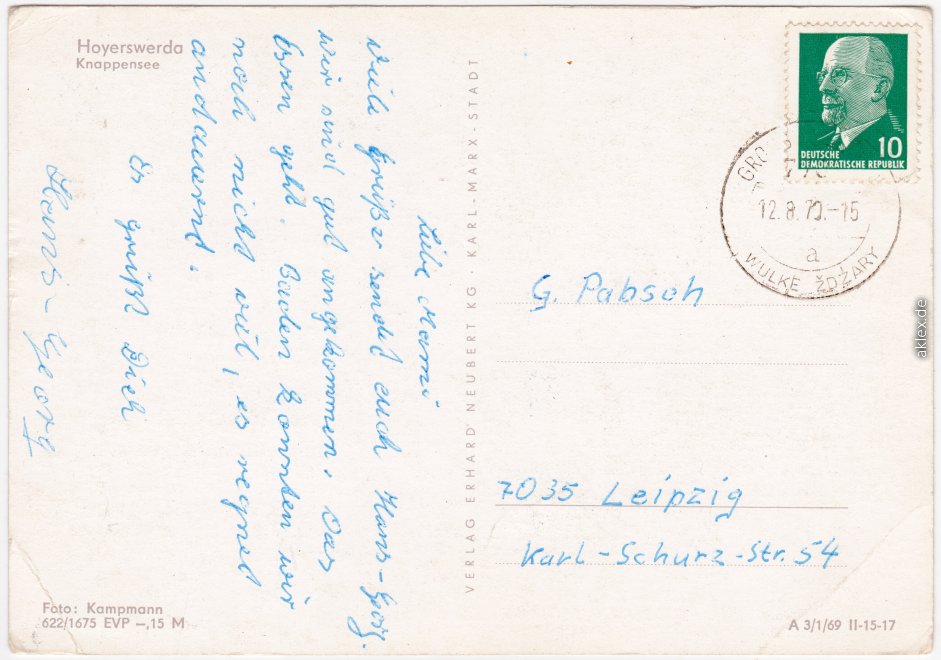 Hoyerswerda
Knappensee
Liebe Mami
viele Grüße sendet euch Hans-Georg.
wir sind gut angekommen. Das
Essen geht. Baden konnten wir
noch nicht viel, es regned
andauernd.
Es grüßt Dich
Hans-Georg
Foto: Kampmann
622/1675 EVP –,15 M
VERLAG GERHARD NEUBERT KG · KARL-MARX-STADT
DEUTSCHE
DEMOKRATISCHE REPUBLIK
10
12.8.70.-15
a
WULKE ŽDŹARY
G. Pabsch
7035 Leipzig
Karl-Schurz-Str. 54
A 3/1/69 II-15-17
aklex.de